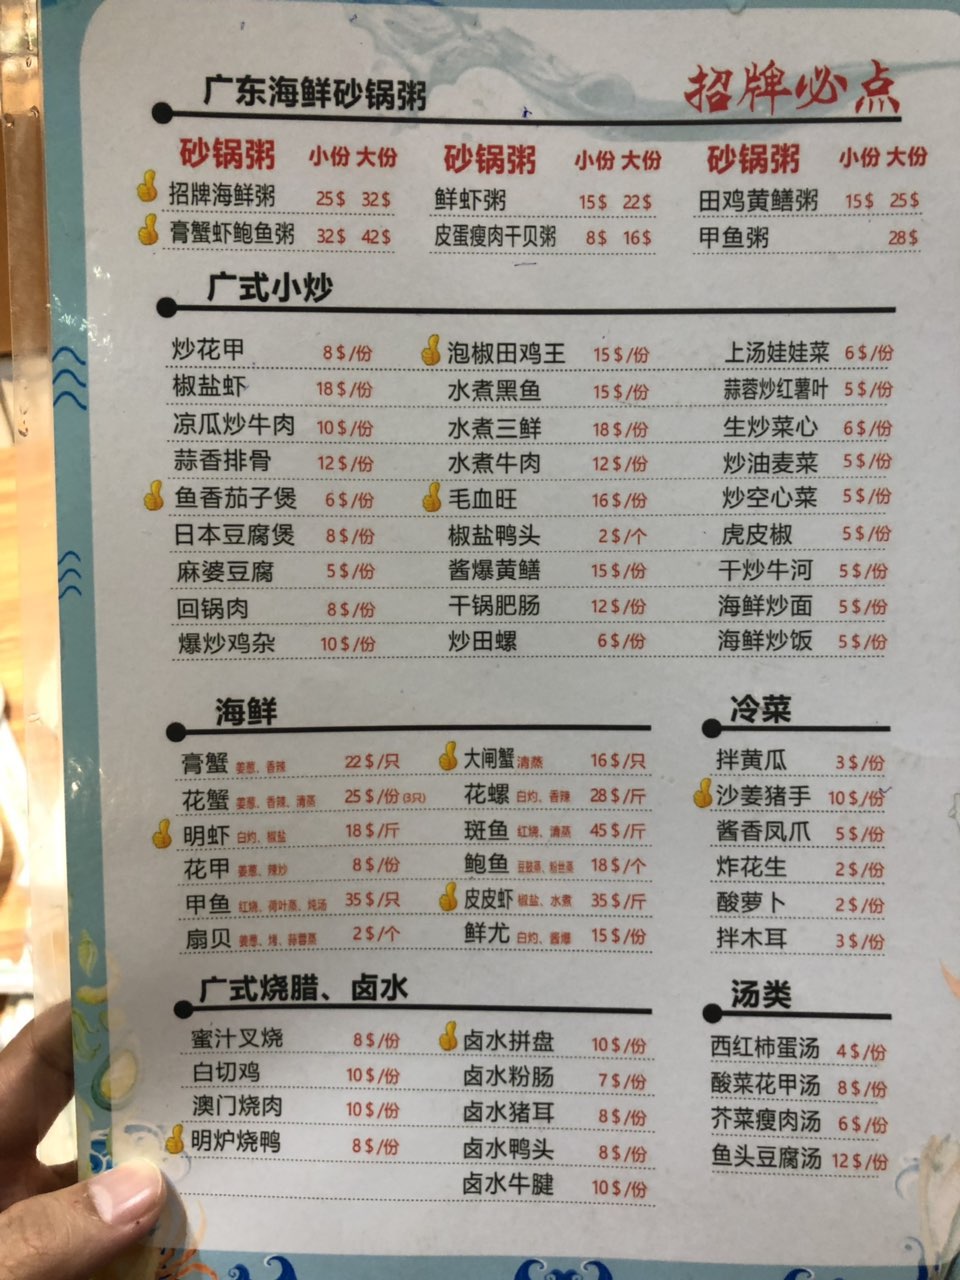 广东海鲜砂锅粥
招牌必点
砂锅粥 小份 大份
招牌海鲜粥 25$ 32$
膏蟹虾鲍鱼粥 32$ 42$
砂锅粥 小份 大份
鲜虾粥 15$ 22$
皮蛋瘦肉干贝粥 8$ 16$
砂锅粥 小份 大份
田鸡黄鳝粥 15$ 25$
甲鱼粥 28$
广式小炒
炒花甲 8$/份
椒盐虾 18$/份
凉瓜炒牛肉 10$/份
蒜香排骨 12$/份
鱼香茄子煲 6$/份
日本豆腐煲 8$/份
麻婆豆腐 5$/份
回锅肉 8$/份
爆炒鸡杂 10$/份
泡椒田鸡王 15$/份
水煮黑鱼 15$/份
水煮三鲜 18$/份
水煮牛肉 12$/份
毛血旺 16$/份
椒盐鸭头 2$/个
酱爆黄鳝 15$/份
干锅肥肠 12$/份
炒田螺 6$/份
上汤娃娃菜 6$/份
蒜蓉炒红薯叶 5$/份
生炒菜心 6$/份
炒油麦菜 5$/份
炒空心菜 5$/份
虎皮椒 5$/份
干炒牛河 5$/份
海鲜炒面 5$/份
海鲜炒饭 5$/份
海鲜
膏蟹 姜葱、香辣 22$/只
花蟹 姜葱、香辣、清蒸 25$/份(3只)
明虾 白灼、椒盐 18$/斤
花甲 姜葱、辣炒 8$/份
甲鱼 红烧、荷叶蒸、炖汤 35$/只
扇贝 姜葱、烤、蒜蓉蒸 2$/个
大闸蟹 清蒸 16$/只
花螺 白灼、香辣 28$/斤
斑鱼 红烧、清蒸 45$/斤
鲍鱼 豆豉蒸、粉丝蒸 18$/个
皮皮虾 椒盐、水煮 35$/斤
鲜尤 白灼、酱爆 15$/份
冷菜
拌黄瓜 3$/份
沙姜猪手 10$/份
酱香凤爪 5$/份
炸花生 2$/份
酸萝卜 2$/份
拌木耳 3$/份
广式烧腊、卤水
蜜汁叉烧 8$/份
白切鸡 10$/份
澳门烧肉 10$/份
明炉烧鸭 8$/份
卤水拼盘 10$/份
卤水粉肠 7$/份
卤水猪耳 8$/份
卤水鸭头 8$/份
卤水牛腱 10$/份
汤类
西红柿蛋汤 4$/份
酸菜花甲汤 8$/份
芥菜瘦肉汤 6$/份
鱼头豆腐汤 12$/份